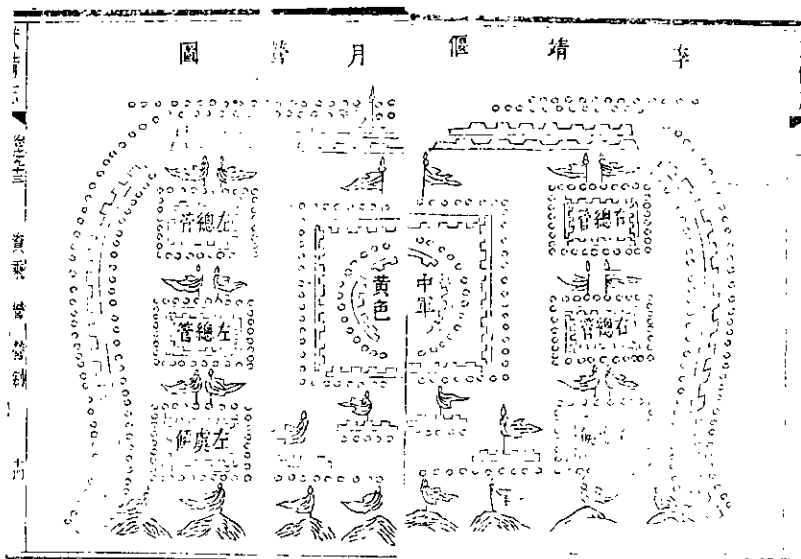 李靖偃月營圖
右總管
右總管
中軍
黃色
左總管
左總管
左虞候